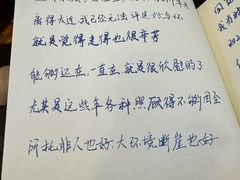 离得太近，我已经无法评述好与坏
就是觉得走得也很辛苦
能够还在，一直在，就是很欣慰的了
尤其是这些年各种照顾得不够周全
所托非人也好，大环境断崖也好